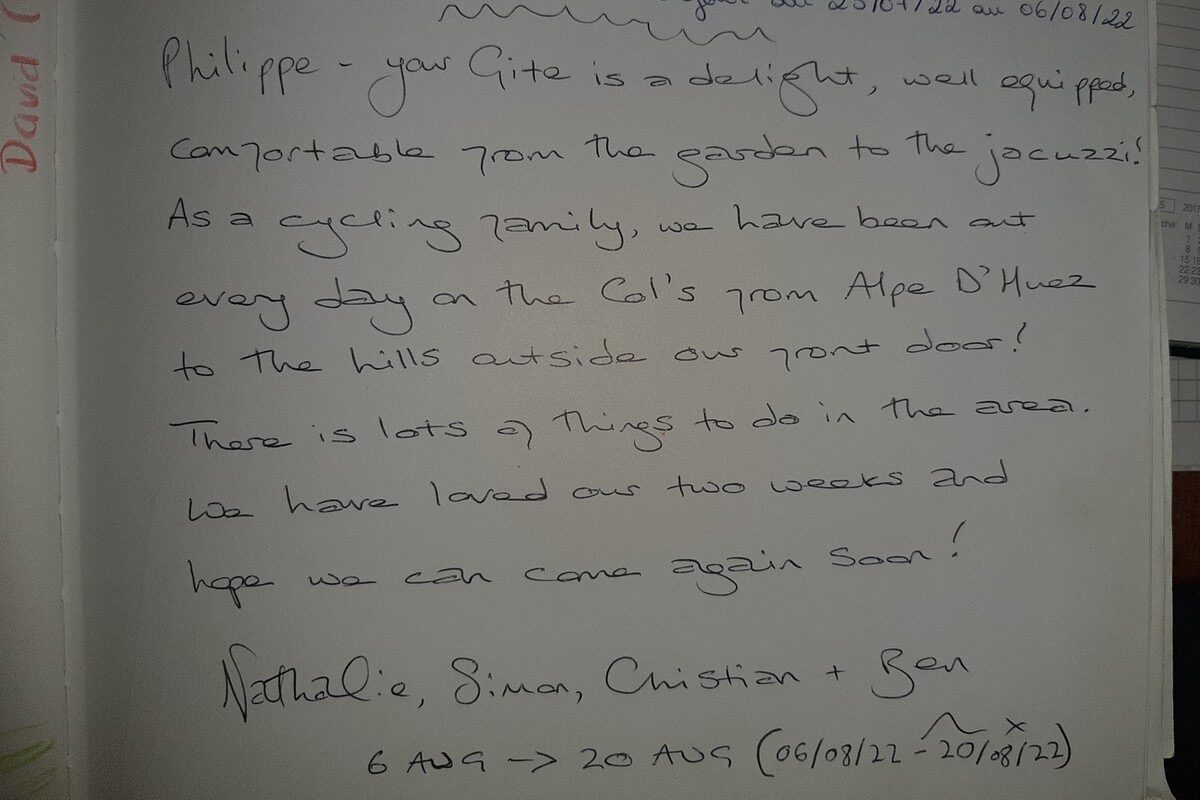 au 06/08/22
Philippe - your Gite is a delight, well equipped,
comfortable from the garden to the jacuzzi!
As a cycling family, we have been out
every day on the Col's from Alpe D'Huez
to the hills outside our front door!
There is lots of things to do in the area.
We have loved our two weeks and
hope we can come again soon!
Nathalie, Simon, Christian + Ben
6 AUG -> 20 AUG (06/08/22 - 20/08/22)
David
2017